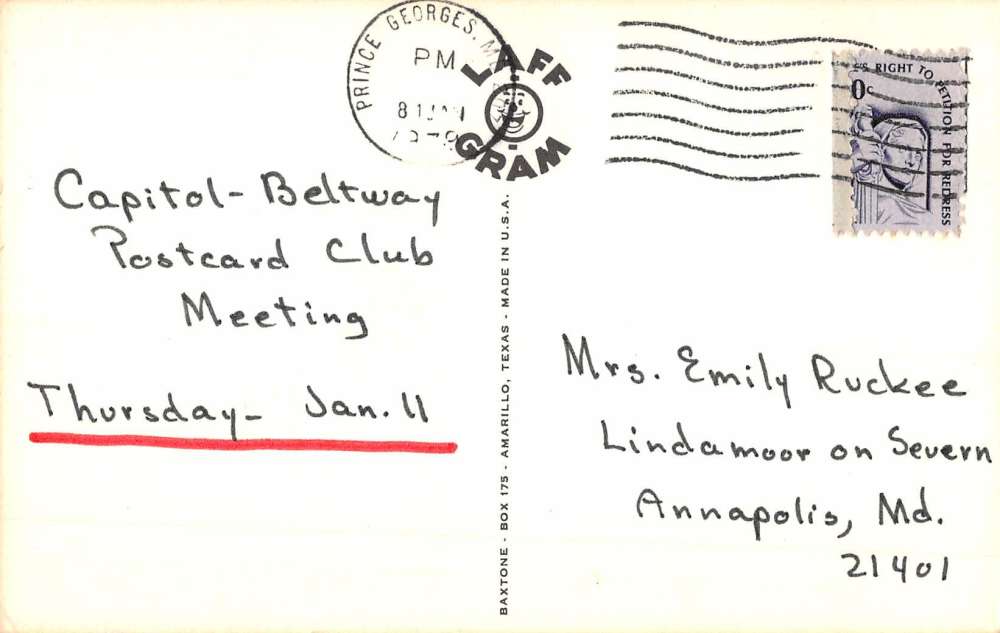 PRINCE GEORGES, M
PM
8 JAN
1979
LAFF
GRAM
RIGHT TO PETITION FOR REDRESS
0c
Capitol-Beltway
Postcard Club
Meeting
Thursday- Jan. 11
BAXTONE - BOX 175 - AMARILLO, TEXAS - MADE IN U.S.A.
Mrs. Emily Ruckee
Lindamoor on Severn
Annapolis, Md.
21401